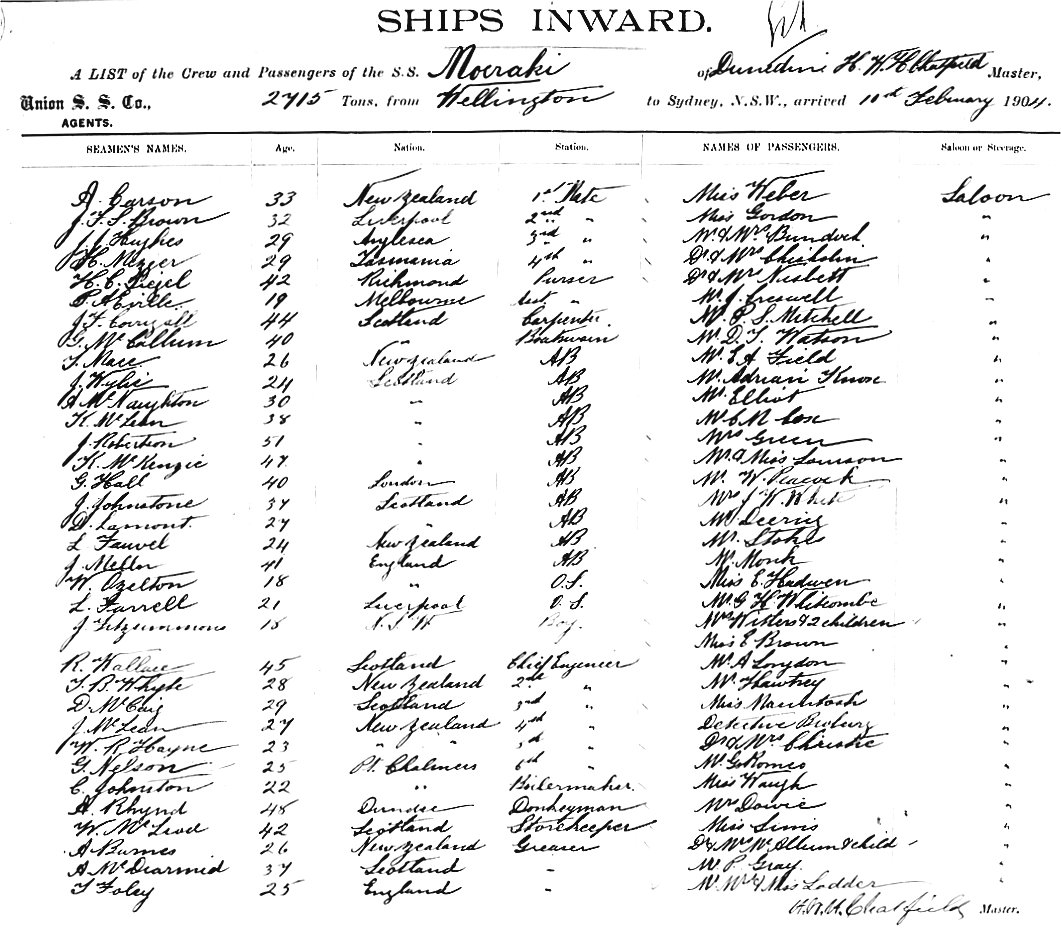 SHIPS INWARD.
A LIST of the Crew and Passengers of the S.S. Moeraki of Dunedin H. W. H. Chatfield Master,
Union S. S. Co., 2715 Tons, from Wellington to Sydney, N.S.W., arrived 10th February 1904.
AGENTS.
SEAMEN'S NAMES. Age. Nation. Station. NAMES OF PASSENGERS. Saloon or Steerage.
A. Carson 33 New Zealand 1st Mate Miss Weber Saloon
J. F. S. Brown 32 Liverpool 2nd " Miss Gordon "
J. J. Hughes 29 Anglesea 3rd " Mr & Mrs Bundock "
H. 29 Tasmania 4th " Dr & Mrs Chisholm "
H. C. 42 Richmond Purser Dr & Mrs Nisbett "
19 Melbourne Asst " Mr J. Creswell "
J. F. Corrigall 44 Scotland Carpenter Mr P. S. Mitchell "
G. McCallum 40 " Boatswain Mr D. T. Watson "
T. Mace 26 New Zealand AB Mr E A Field "
J. Wylie 24 Scotland AB Mr Adrian Knox "
A McNaughton 30 " AB Mr Elliot "
K. McLean 38 " AB Mr C N Cox "
J. Robertson 51 " AB Mrs Green "
K. McKenzie 47 " AB Mr & Miss "
G. Hall 40 London AB Mr. W. Peacock "
J. Johnstone 37 Scotland AB Mrs J W. White "
D. Lamont 27 " AB Mr Deering "
L Fauvel 24 New Zealand AB Mr. Stokes "
J. Mellor 41 England AB Mr Monk "
W. Ozelton 18 " O.S. Miss E. Hadwen "
L. Farrell 21 Liverpool O.S. Mr G H Whitcombe "
J. Fitzsimmons 18 N.S.W Boy Mrs & 2 children "
Miss E Brown "
R. Wallace 45 Scotland Chief Engineer Mr A Longdon "
T. B. Whyte 28 New Zealand 2nd " Mr Hawtrey "
D. McCaig 29 Scotland 3rd " Miss Mackintosh "
J. McLean 27 New Zealand 4th " Detective "
W. R. Hayne 23 " " 5th " Dr & Mrs Christie "
G. Nelson 25 Pt. Chalmers 6th " Mr G Romeo "
C. Johnston 22 " Boilermaker. Miss Waugh "
A. Rhynd 48 Dundee Donkeyman Mrs Dowie "
W. McLeod 42 Scotland Storekeeper Miss Sims "
A Burnes 26 New Zealand Greaser Dr & Mrs McAllum & child "
A McDiarmid 37 Scotland " Mr P. Gray "
T Foley 25 England " Mr Mrs & Miss Lodder "
H. W. H. Chatfield Master.